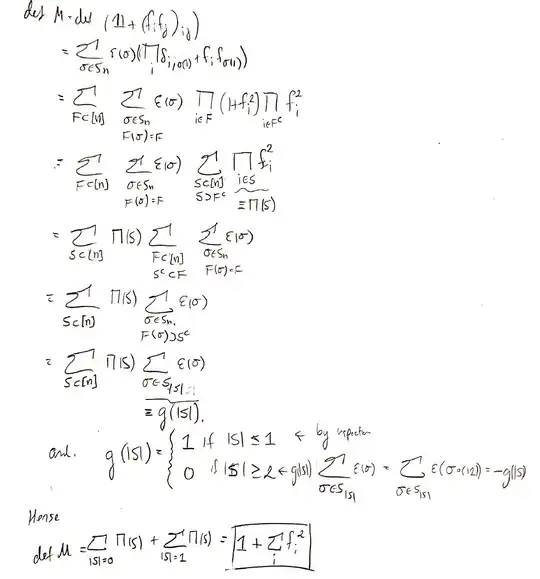 det M = det (𝟙 + (f_i f_j)_{ij})
= Σ_{σ∈S_n} ε(σ) (∏_i δ_{i,σ(i)} + f_i f_{σ(i)})
= Σ_{F⊂[n]} Σ_{σ∈S_n, F(σ)=F} ε(σ) ∏_{i∈F} (1+f_i^2) ∏_{i∈F^c} f_i^2
= Σ_{F⊂[n]} Σ_{σ∈S_n, F(σ)=F} ε(σ) Σ_{S⊂[n], S⊃F^c} ∏_{i∈S} f_i^2
≡ Π(S)
= Σ_{S⊂[n]} Π(S) Σ_{F⊂[n], S^c⊂F} Σ_{σ∈S_n, F(σ)=F} ε(σ)
= Σ_{S⊂[n]} Π(S) Σ_{σ∈S_n, F(σ)⊃S^c} ε(σ)
= Σ_{S⊂[n]} Π(S) Σ_{σ∈S_{|S|}} ε(σ)
≡ g(|S|).
and. g(|S|) = { 1 if |S| ≤ 1 ← by inspection
0 if |S| ≥ 2 ← g(|S|) Σ_{σ∈S_{|S|}} ε(σ) = Σ_{σ∈S_{|S|}} ε(σ∘(12)) = -g(|S|)
Hense
det M = Σ_{|S|=0} Π(S) + Σ_{|S|=1} Π(S) = 1 + Σ_i f_i^2